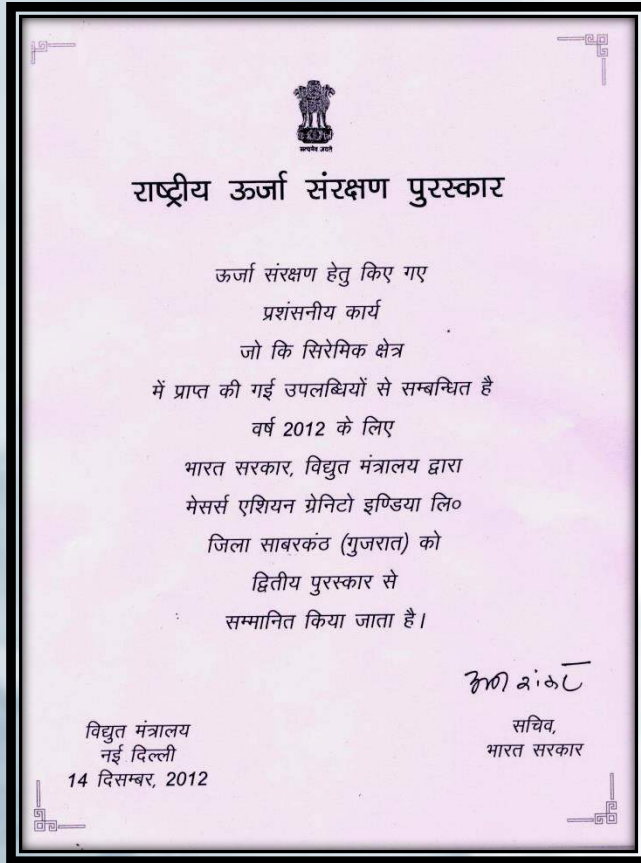 सत्यमेव जयते
राष्ट्रीय ऊर्जा संरक्षण पुरस्कार
ऊर्जा संरक्षण हेतु किए गए
प्रशंसनीय कार्य
जो कि सिरेमिक क्षेत्र
में प्राप्त की गई उपलब्धियों से सम्बन्धित है
वर्ष 2012 के लिए
भारत सरकार, विद्युत मंत्रालय द्वारा
मेसर्स एशियन ग्रेनिटो इण्डिया लि०
जिला साबरकंठ (गुजरात) को
द्वितीय पुरस्कार से
सम्मानित किया जाता है।
सचिव,
भारत सरकार
विद्युत मंत्रालय
नई दिल्ली
14 दिसम्बर, 2012